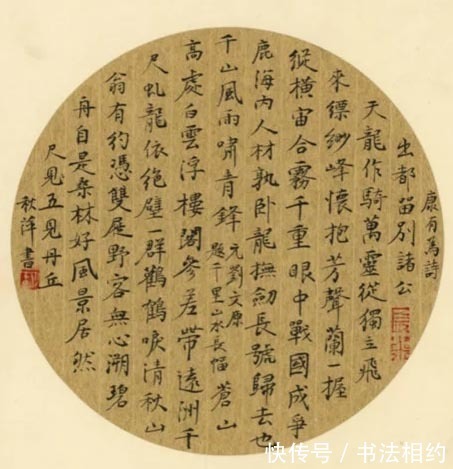 康有為詩
出都留别諸公
天龍作騎萬靈從獨立飛
來縹緲峰懷抱芳馨蘭一握
縱橫宙合霧千重眼中戰國成爭
鹿海內人材孰卧龍撫劍長號歸去也
千山風雨嘯青鋒
元劉文原
題千里山水長幅
蒼山
高處白雲浮樓閣參差帶遠洲千
尺虬龍依絶壁一群鸛鶴唳清秋山
翁有約憑雙屐野客無心溯碧
舟自是桑林好風景居然
尺見五見丹丘
秋萍書
快传号 / 书法相约